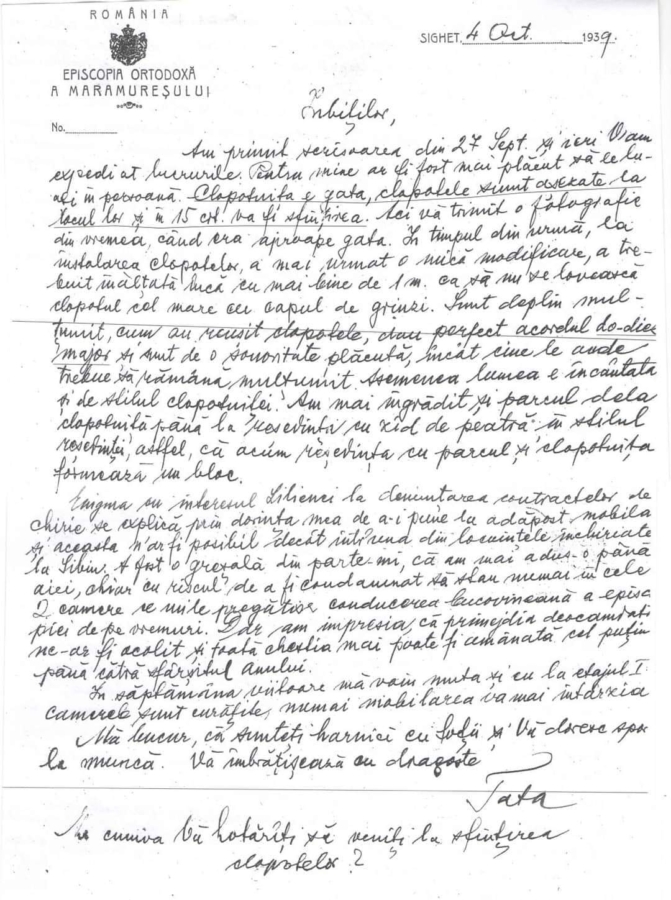 ROMÂNIA
EPISCOPIA ORTODOXĂ
A MARAMUREȘULUI
No.
SIGHET, 4 Oct. 1939.
Iubiților,
Am primit scrisoarea din 27 Sept. și ieri V'am
expediat lucrurile. Pentru mine ar fi fost mai plăcut să le lu-
ați în persoană. Clopotnița e gata, clopotele sunt așezate la
locul lor și în 15 crt. va fi sfințirea. Aci vă trimit o fotografie
din vremea, când era aproape gata. In timpul din urmă, la
instalarea clopotelor, a mai urmat o mică modificare, a tre-
buit înălțată încă cu mai bine de 1 m. ca să nu se lovească
clopotul cel mare cu capul de grinzi. Sunt deplin mul-
țumit, cum au reușit clopotele, dau perfect acordul do-diez
major și sunt de o sonoritate plăcută, încât cine le aude
trebue să rămână mulțumit. Asemenea lumea e încântată
și de stilul clopotniței. Am mai îngrădit și parcul dela
clopotniță până la reședință cu zid de peatră în stilul
reședinței, astfel, că acum reședința cu parcul și clopotnița
formează un bloc.
Enigma cu interesul Lilienei la denunțarea contractelor de
chirie se explică prin dorința mea de a-i pune la adăpost mobila
și aceasta n'ar fi posibil decât într'una din locuințele închiriate
la Sibiu. A fost o greșală din parte-mi, că am mai adus-o până
aici, chiar cu riscul de a fi condamnat să stau numai în cele
2 camere ce mi le pregătise conducerea bucovineană a episco
piei de pe vremuri. Dar am impresia că primejdia deocamdată
ne-ar fi ocolit și toată chestia mai poate fi amânată cel puțin
până cătră sfârșitul anului.
In săptămâna viitoare mă voiu muta și eu la etajul I.
Camerele sunt curățite, numai mobilarea va mai întârzia
Mă bucur, că sunteți harnici cu toții și Vă doresc spor
la muncă. Vă îmbrățișează cu dragoste
Tata
Nu cumva Vă hotărîți să veniți la sfințirea
clopotelor?